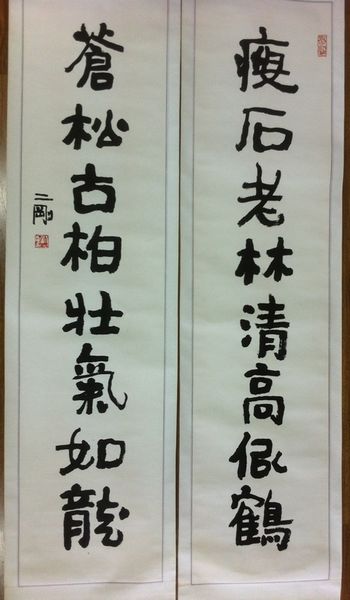 瘦石老林清高似鶴
蒼松古柏壯氣如龍
二剛